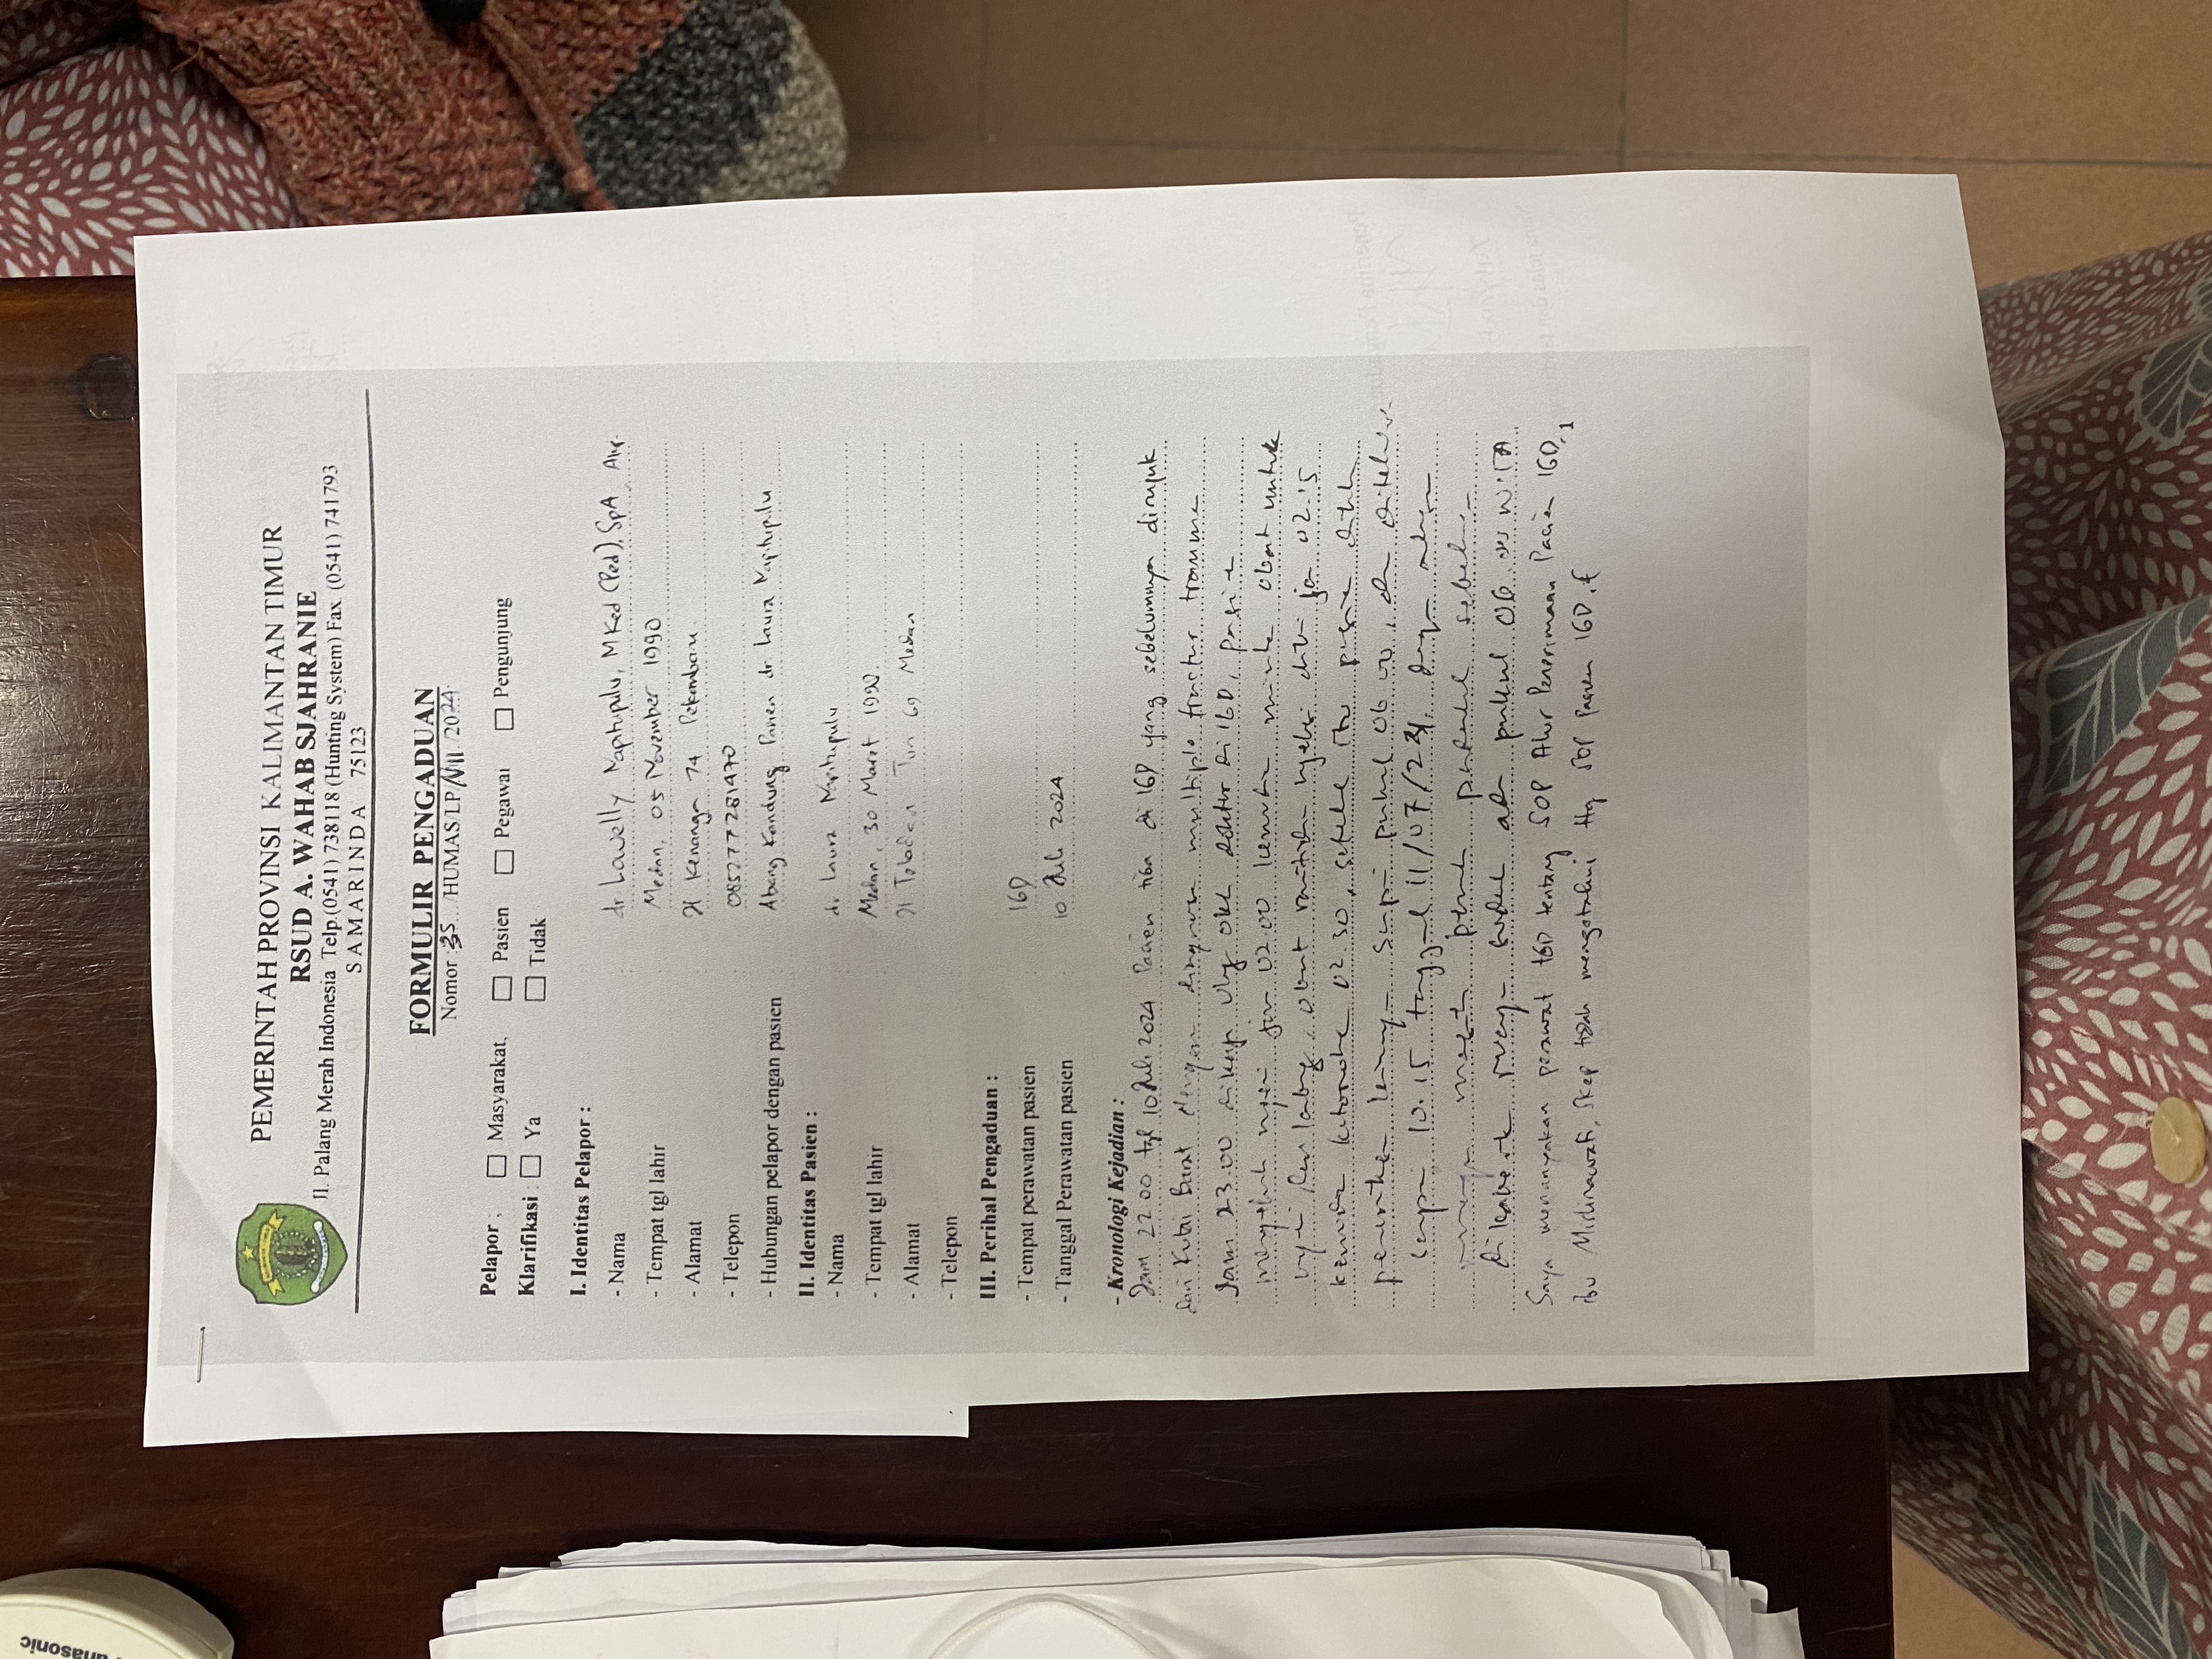 Panasonic
PEMERINTAH PROVINSI KALIMANTAN TIMUR
RSUD A. WAHAB SJAHRANIE
Jl. Palang Merah Indonesia Telp.(0541) 738118 (Hunting System) Fax. (0541) 741793
SAMARINDA 75123
FORMULIR PENGADUAN
Nomor : 35 /HUMAS/LP/VII/2024
Pelapor : Masyarakat, Pasien Pegawai Pengunjung
Klarifikasi : Ya Tidak
I. Identitas Pelapor :
- Nama : dr Lowelly Napitupulu, MKed (Ped), SpA
- Tempat tgl lahir : Medan, 05 November 1990
- Alamat : Jl Kenanga 74 Pekanbaru
- Telepon : 085277281470
- Hubungan pelapor dengan pasien : Abang Kandung Pasien dr. Laura Napitupulu
II. Identitas Pasien :
- Nama : dr Laura Napitupulu
- Tempat tgl lahir : Medan, 30 Maret
- Alamat : Jl 69 Medan
- Telepon
III. Perihal Pengaduan :
- Tempat perawatan pasien : IGD
- Tanggal Perawatan pasien : 10 Juli 2024
- Kronologi Kejadian :
Jam 22.00 tgl 10 Juli 2024 Pasien tiba di IGD yang sebelumnya dirujuk
dari Kutai Barat dengan diagnosa multiple fractur trauma
Jam 23.00 dikaji ulang oleh dokter di IGD, pasien
mengeluh nyeri jam 02.00 kemudian minta obat untuk
nyeri dan lambung, obat ranitidin injeksi jam 02.15
kemudian 02.30, setelah itu pasien
sampai pukul 06.00, dan
sampai 10.15 tanggal 11/07/24, dengan alasan
ruangan masih penuh padahal sebelumnya
dikabarkan ruangan sudah ada pukul 06.00 WITA.
Saya menanyakan perawat IGD tentang SOP Alur Penerimaan Pasien IGD,
ibu Mislinawati, Skep tidak mengetahui ttg SOP pasien IGD.
1